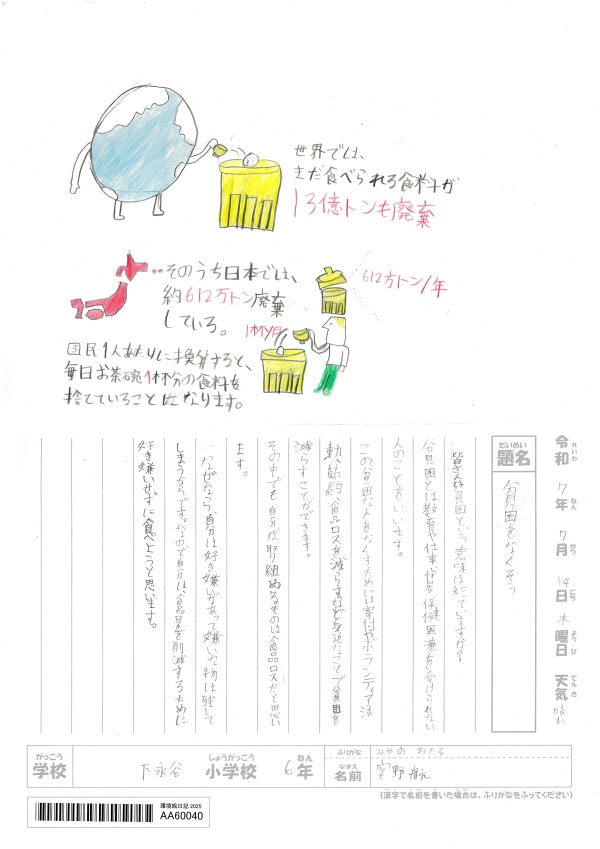 世界では、
まだ食べられる食料が
13億トンも廃棄
そのうち日本では、
約612万トン廃棄
している。
612万トン/年
1杯/日
国民1人あたりに換算すると、
毎日お茶碗1杯分の食料を
捨てていることになります。
令和 れいわ 7年 ねん 7月 がつ 14日 にち 木曜日 ようび 天気 てんき 晴れ
だいめい
題名
貧困をなくそう
皆さん、貧困という意味は知っていますか？
貧困とは教育や仕事、住居、保健医療を受けられない
人のことをいいます。
この貧困な人をなくすためには寄付やボランティア活
動、節約、食品ロスを減らすなど身近なことで貧困を
減らすことができます。
その中でも自分が取り組めるものは食品ロスだと思い
ます。
なぜなら、自分は好き嫌いがあって嫌いな物は残して
しまうからです。なので自分は、食品ロスを削減するために
好き嫌いせずに食べようと思います。
がっこう
学校
下永谷
しょうがっこう
小学校
6年
ねん
ふりがな
みやの わたる
なまえ
名前
宮野航
(漢字で名前を書いた場合は、ふりがなをふってください)
環境絵日記 2025
AA60040